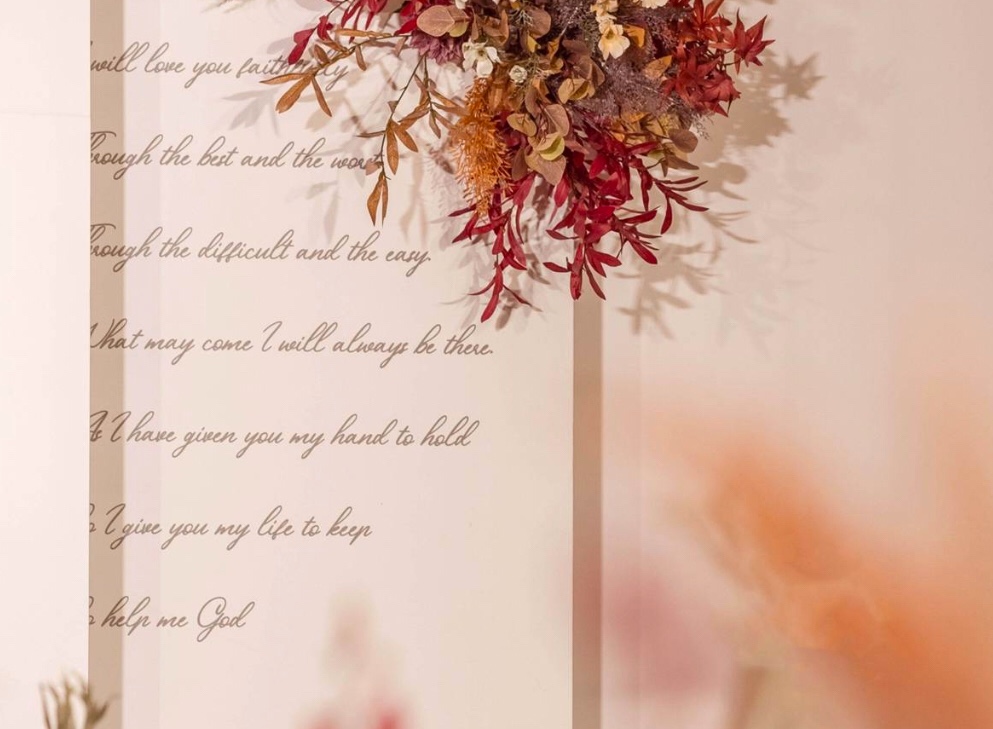 will love you faithfully
Through the best and the worst
Through the difficult and the easy.
What may come I will always be there.
As I have given you my hand to hold
So I give you my life to keep
So help me God